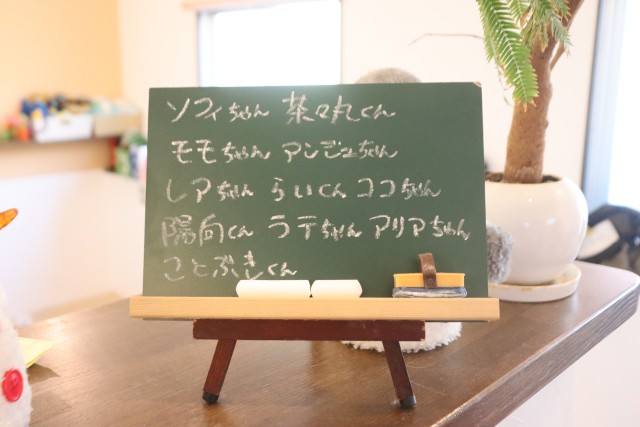 ソフィちゃん 茶々丸くん
モモちゃん アンジュちゃん
レアちゃん らいくん ココちゃん
陽向くん ラテちゃん アリアちゃん
ことぶきくん